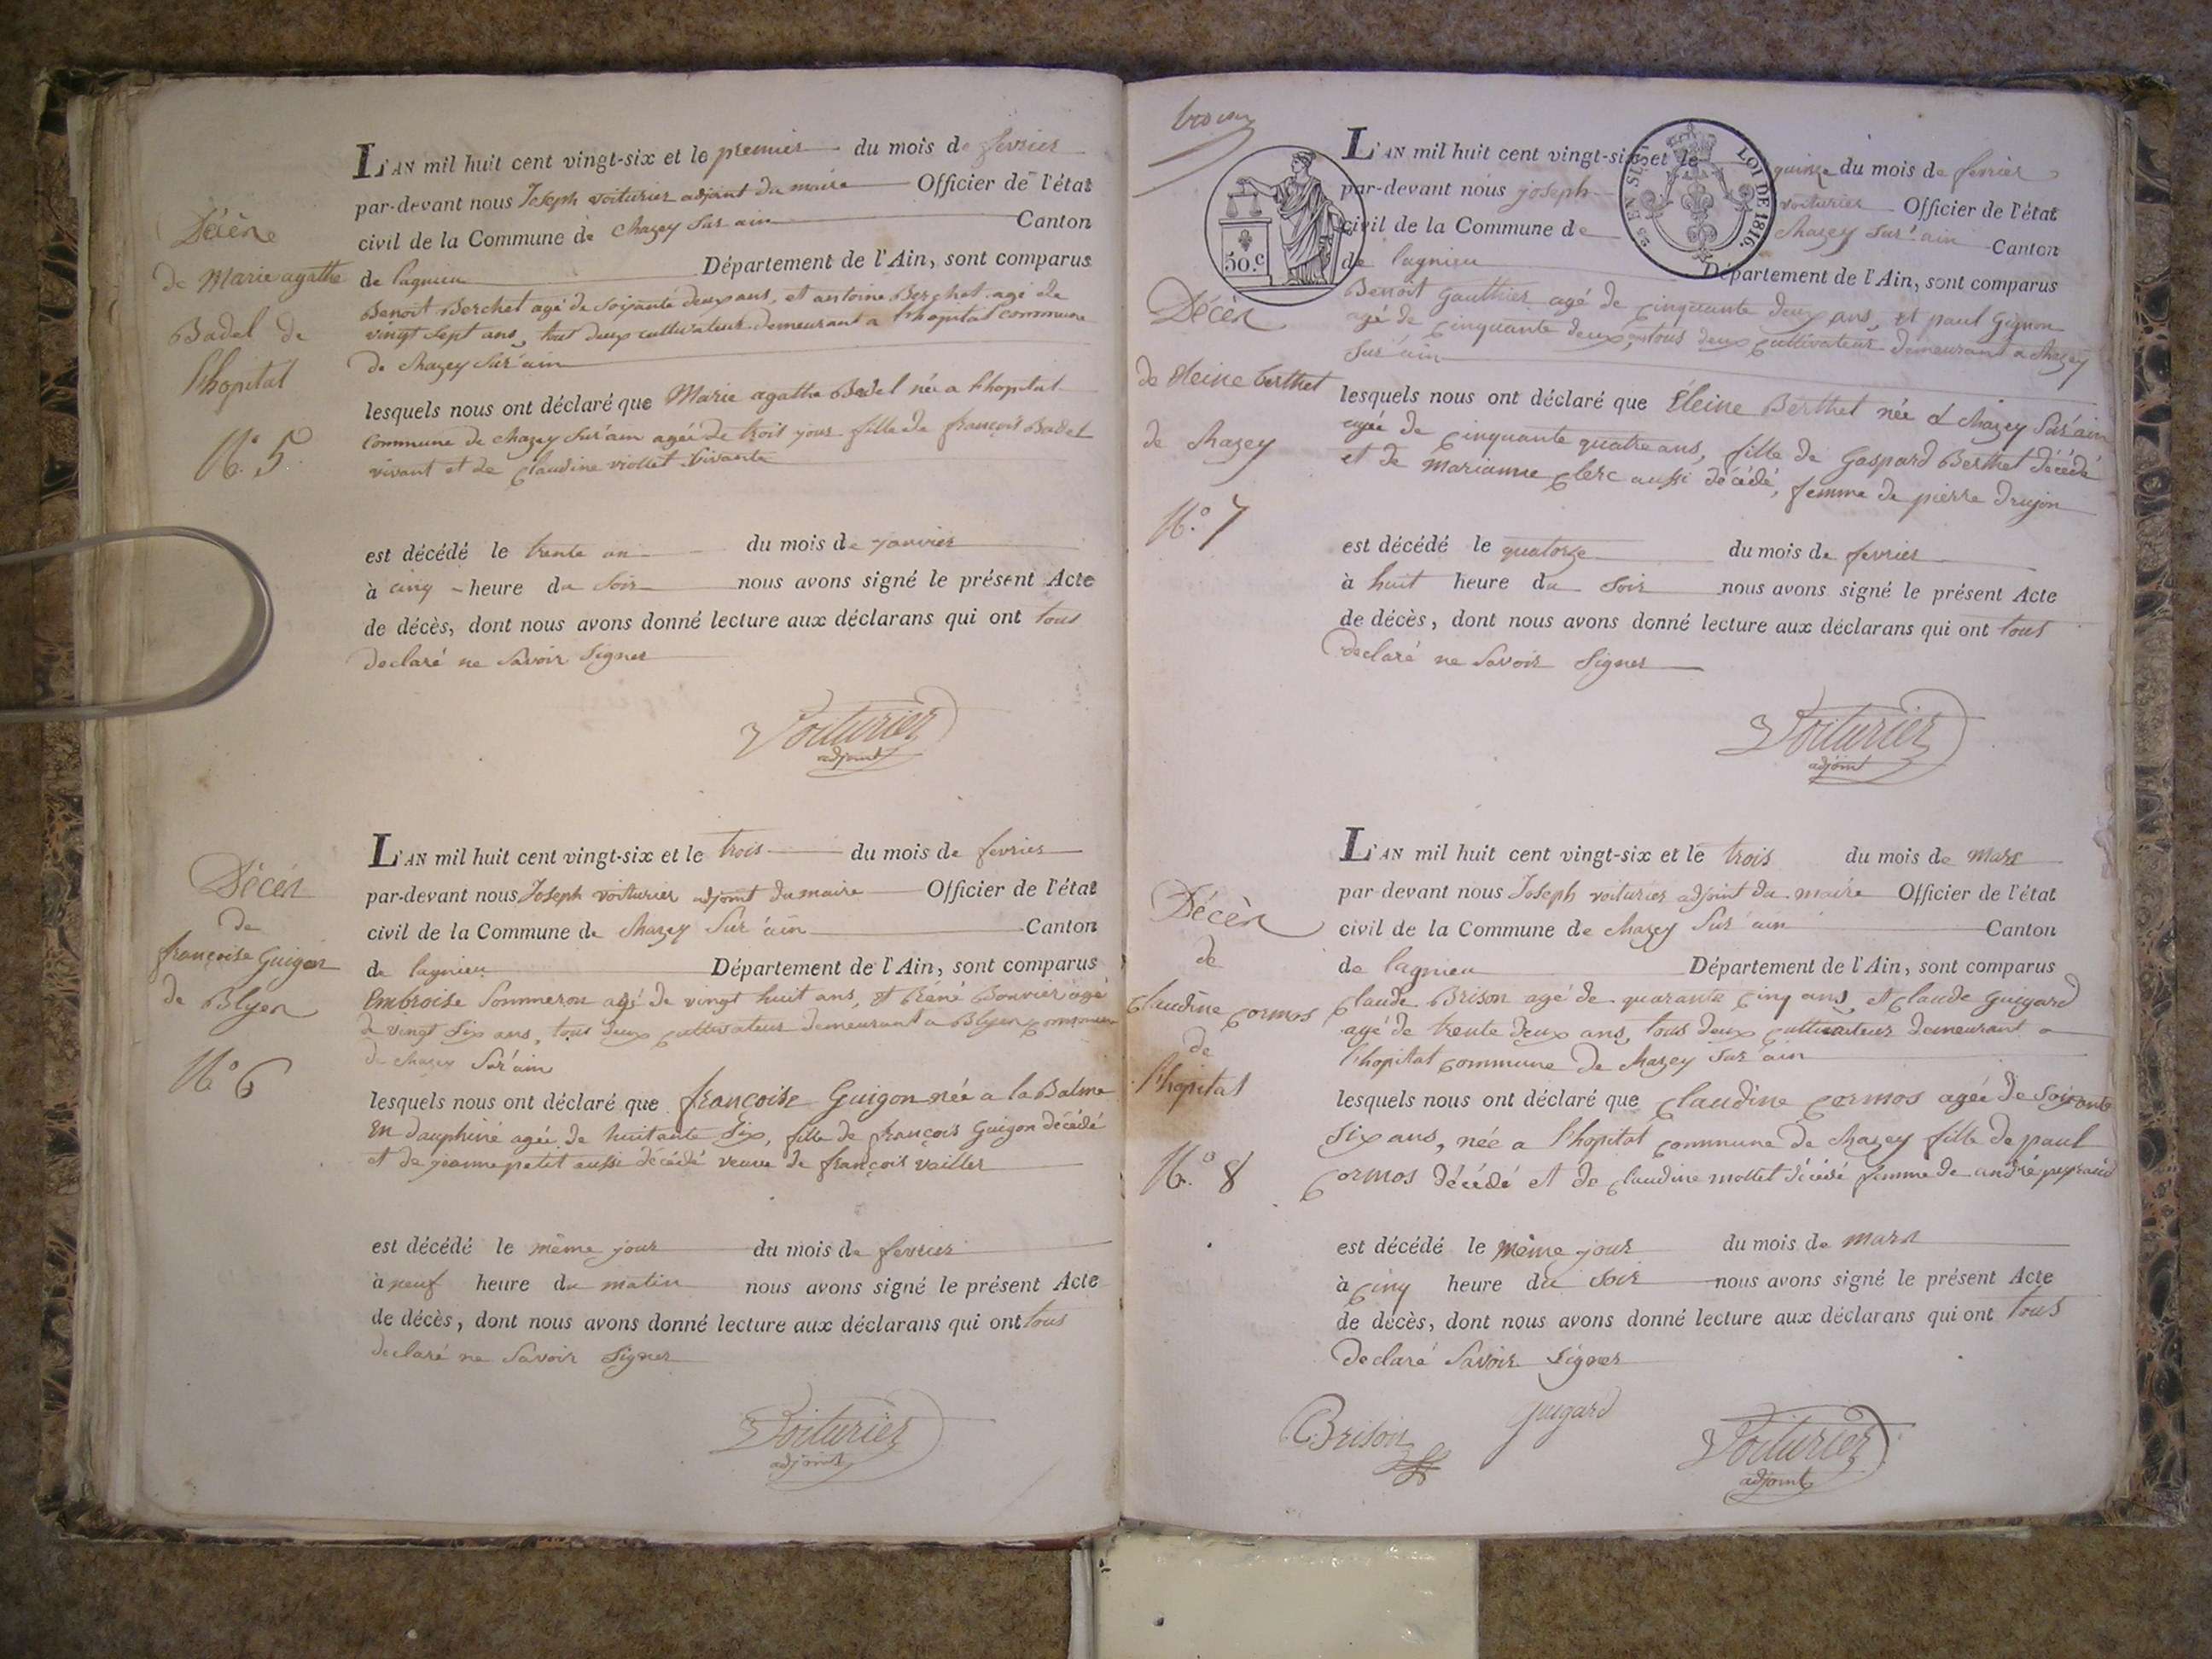 Décène
de Marie agathe
Badel de
l'hopital
N.° 5
L'AN mil huit cent vingt-six et le premier du mois de fevrier
par-devant nous Joseph voiturier adjoint du maire Officier de l'état
civil de la Commune de chazey sur ain Canton
de lagnieu Département de l'Ain, sont comparus
Benoit Berchet agé de soixante deux ans, et antoine Berchet agé de
vingt sept ans, tout deux cultivateur demeurant a l'hopital commune
de chazey sur'ain
lesquels nous ont déclaré que Marie agathe Badel née a l'hopital
commune de chazey sur'ain agée de trois jour fille de françois Badel
vivant et de claudine viollet vivante
est décédé le trente un du mois de janvier
à cinq heure du soir nous avons signé le présent Acte
de décès, dont nous avons donné lecture aux déclarans qui ont tous
declaré ne savoir signer
Voiturier
adjoint
Décèn
de
françoise Guigon
de Blyen
N° 6
L'AN mil huit cent vingt-six et le trois du mois de fevrier
par-devant nous Joseph voiturier adjoint du maire Officier de l'état
civil de la Commune de chazey sur'ain Canton
de lagnieu Département de l'Ain, sont comparus
Embroise Sommeron agé de vingt huit ans, et Réné Bonvier agé
de vingt six ans, tous deux cultivateur demeurant a Blyen commune
de chazey sur'ain
lesquels nous ont déclaré que françoise Guigon née a la Balme
en dauphiné agée de huitante six, fille de françois Guigon décédé
et de jeanne petit aussi décédé veuve de françois vailler
est décédé le même jour du mois de fevrier
à neuf heure du matin nous avons signé le présent Acte
de décès, dont nous avons donné lecture aux déclarans qui ont tous
declaré ne savoir signer
Voiturier
adjoint
50.c
EN SUS
LOI DE 1816.
Décèn
de Eleine berthet
de chazey
N.° 7
L'AN mil huit cent vingt-six et le quinze du mois de fevrier
par-devant nous joseph voiturier Officier de l'état
civil de la Commune de chazey sur'ain Canton
de lagnieu Département de l'Ain, sont comparus
Benoit Gauthier agé de cinquante deux ans, et paul Gignon
agé de cinquante deux ans tous deux cultivateur demeurant a chazey
sur'ain
lesquels nous ont déclaré que Éleine Berthet née a chazey sur'ain
agée de cinquante quatre ans, fille de Gaspard Berthet décédé
et de marianne clerc aussi décédé, femme de pierre drujon
est décédé le quatorze du mois de fevrier
à huit heure du soir nous avons signé le présent Acte
de décès, dont nous avons donné lecture aux déclarans qui ont tous
declaré ne savoir signer
Voiturier
adjoint
Décèn
de
claudine cormos
de
l'hopital
N.° 8
L'AN mil huit cent vingt-six et le trois du mois de mars
par-devant nous Joseph voiturier adjoint du maire Officier de l'état
civil de la Commune de chazey sur'ain Canton
de lagnieu Département de l'Ain, sont comparus
claude Brison agé de quarante cinq ans, et claude Guigard
agé de trente deux ans, tous deux cultivateur demeurant a
l'hopital commune de chazey sur'ain
lesquels nous ont déclaré que claudine cormos agée de soixante
six ans, née a l'hopital commune de chazey fille de paul
cormos décédé et de claudine mollet décédé femme de andré peyraud
est décédé le même jour du mois de mars
à cinq heure du soir nous avons signé le présent Acte
de décès, dont nous avons donné lecture aux déclarans qui ont tous
declaré savoir signer
Brison guigard Voiturier
adjoint